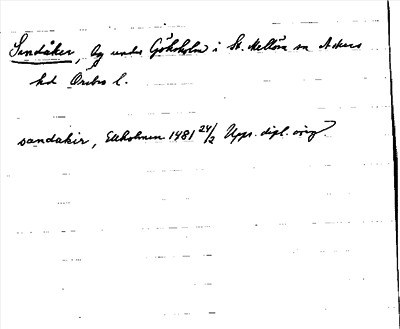 Sandåker, lg under Göksholm i St. Mellösa sn Askers
hd Örebro l.
sandakir, Ekholmen 1481 24/2 Upps. dipl. orig.